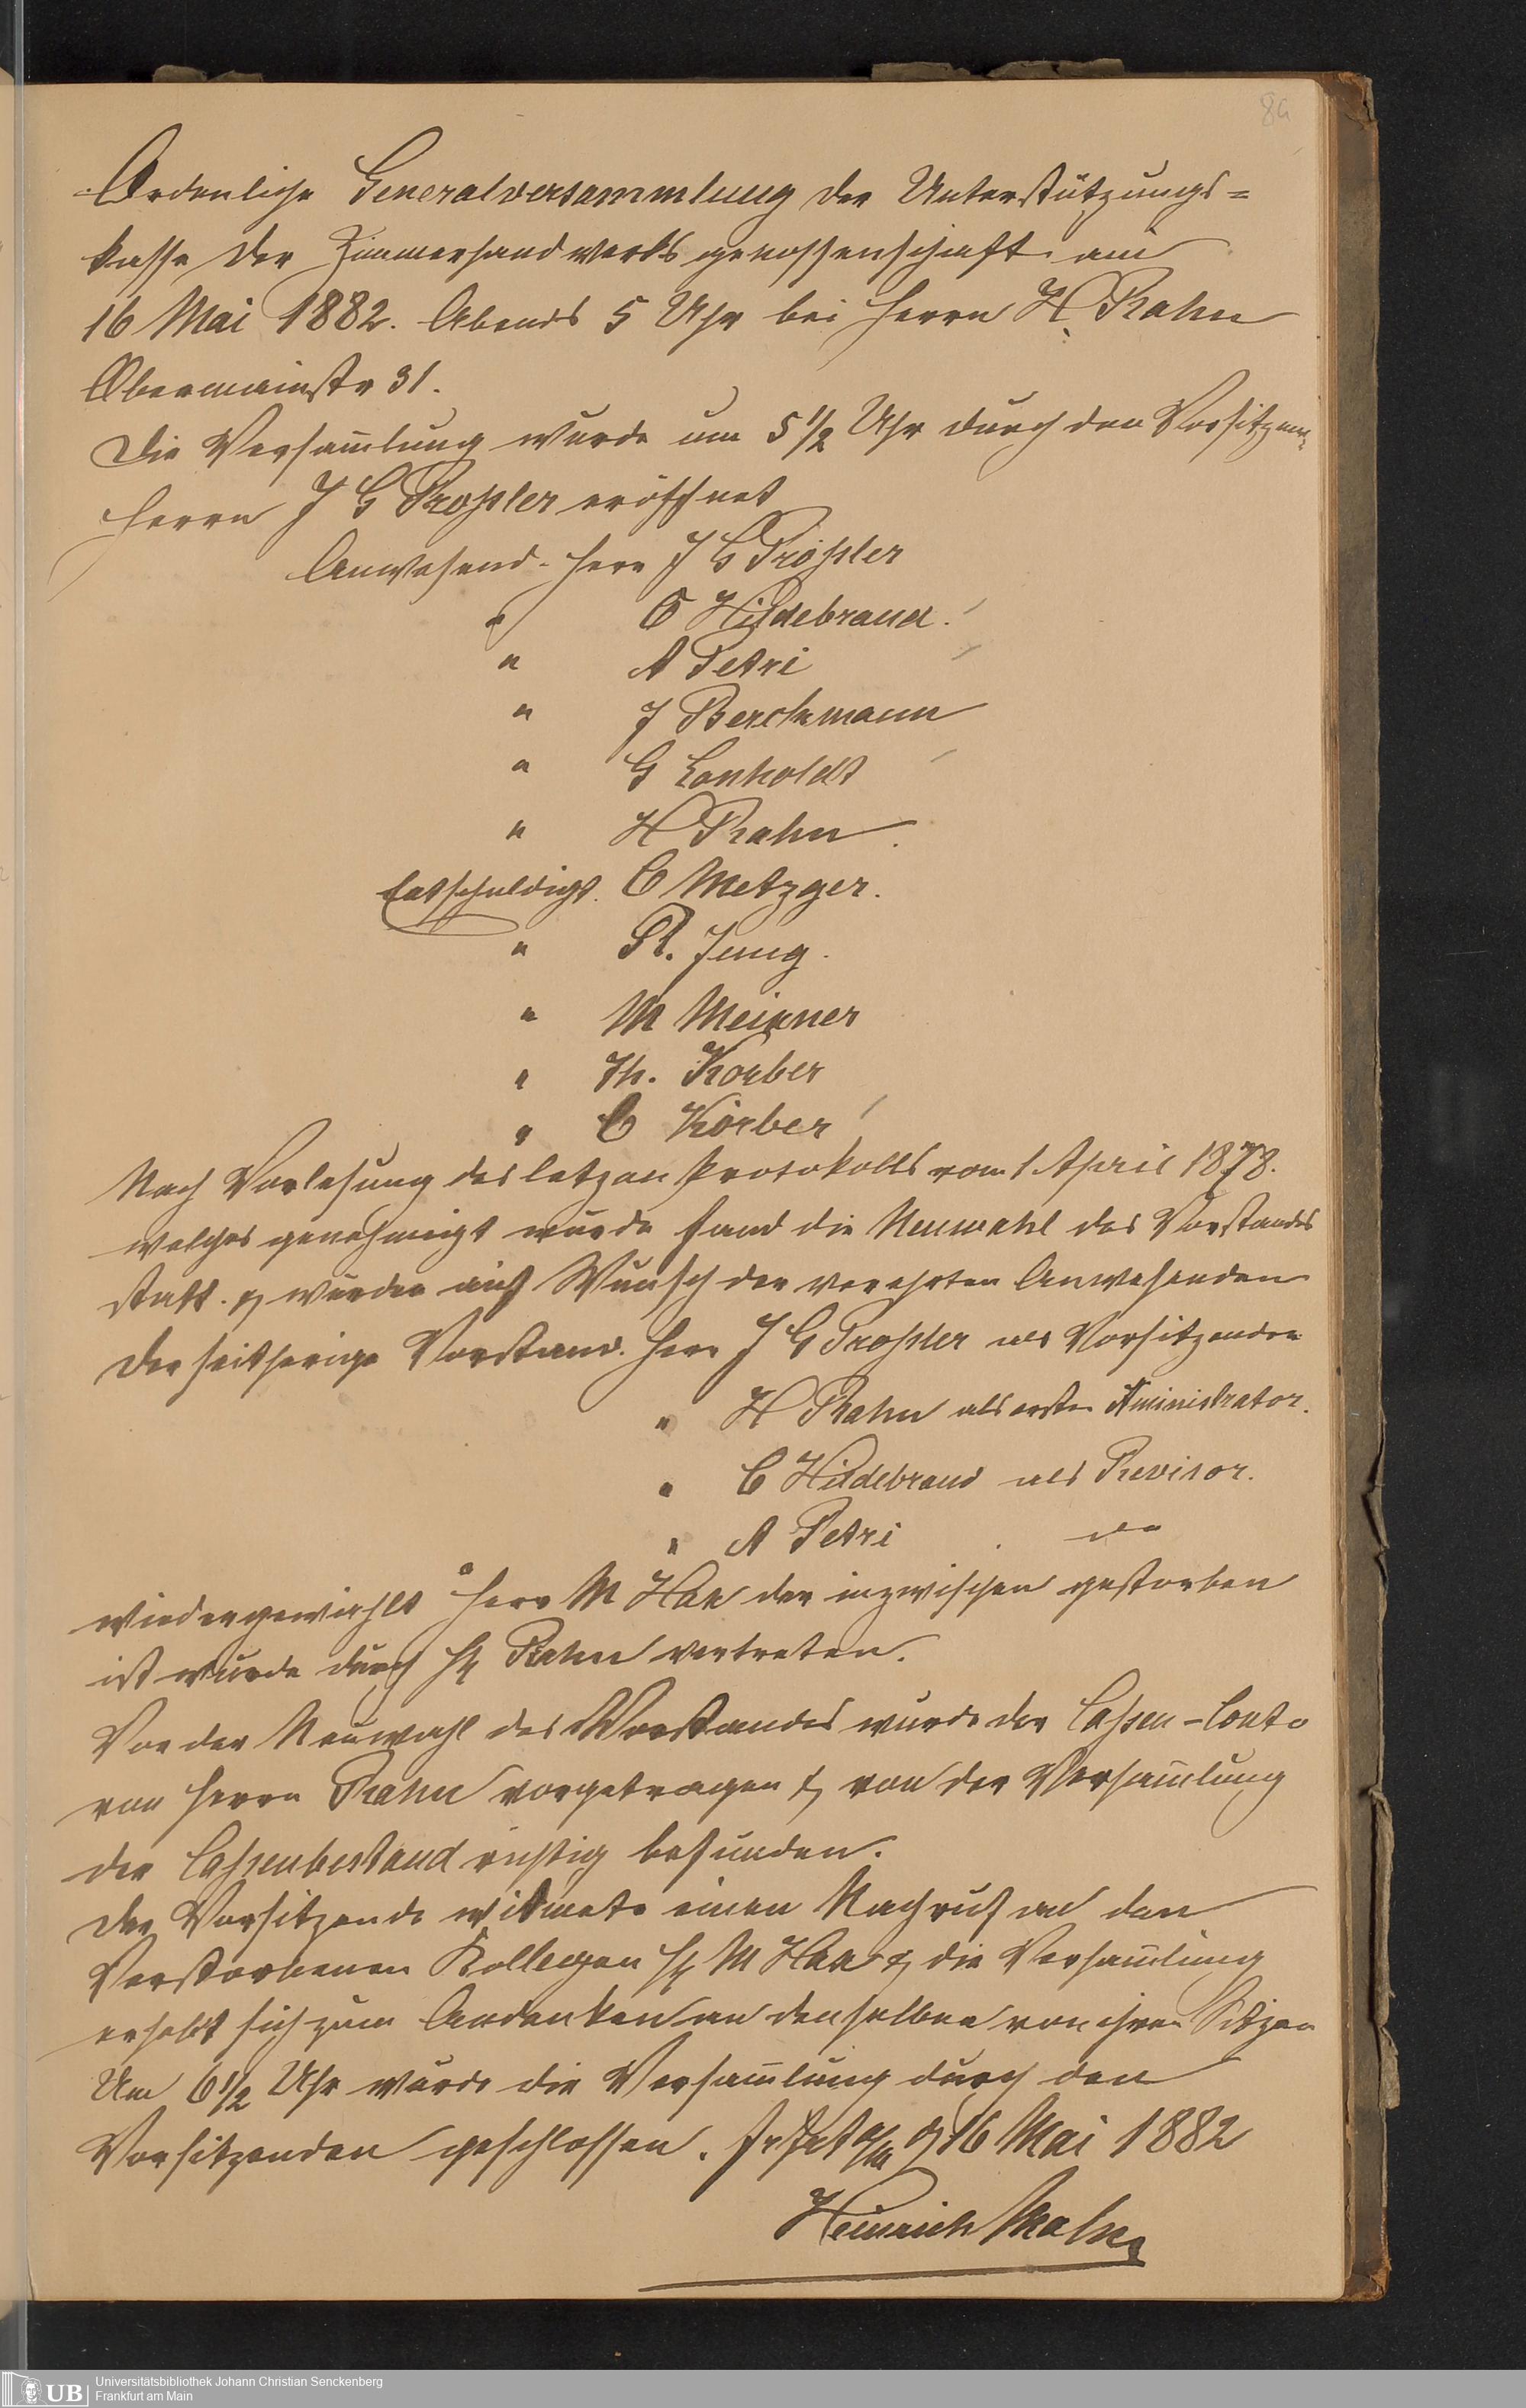 8a
Ordenliche Generalversammlung der Unterstützungs=
kasse der Zimmerhandwerksgenossenschaft am
16 Mai 1882. Abends 5 Uhr bei Herrn H. Rahn
Obermainstr 31.
Die Versam̄lung wurde um 5 1/2 Uhr durch den Vorsitzen-
Herrn J G Prossler eröffnet
Anwesend. Herr J G Prössler
" C Hildebrand.
" A Petri
" J Berckmann
" G Lonholdt
" H Rahn.
Entschuldigt. C Metzger.
" St. Jung.
" M Meixner
" Th. Korber
" C Körber
Nach Vorlesung des letzen Protokolls vom 1 April 1878.
welches genehmigt wurde fand die Neuwahl des Vorstandes
statt. & wurden auf Wunsch der verehrten Anwesenden
der seitherige Vorstand. Herr J G Prossler als Vorsitzenden
" H Rahn als erster Aministrator.
" C Hildebrand als Revisor.
" A Petri do
wiedergewählt Herr M Hax der inzwischen gestorben
ist wurde durch H Rahn vertreten.
Vor der Neuwahl des Vorstandes wurde der Cassen-Conto
von Herrn Rahn vorgetragen & von der Versam̄lung
der Cassenbestand richtig befunden.
Der Vorsitzende widmete einen Nachruf an den
Verstorbenen Kollegen H M Hax & die Versam̄lung
erhebt sich zum Andenken an denselben von ihren Sitzen
Um 6 1/2 Uhr wurde die Versam̄lung durch den
Vorsitzenden geschlossen. Frkft a/M d 16 Mai 1882
Heinrich Rahn
UB Universitätsbibliothek Johann Christian Senckenberg
Frankfurt am Main